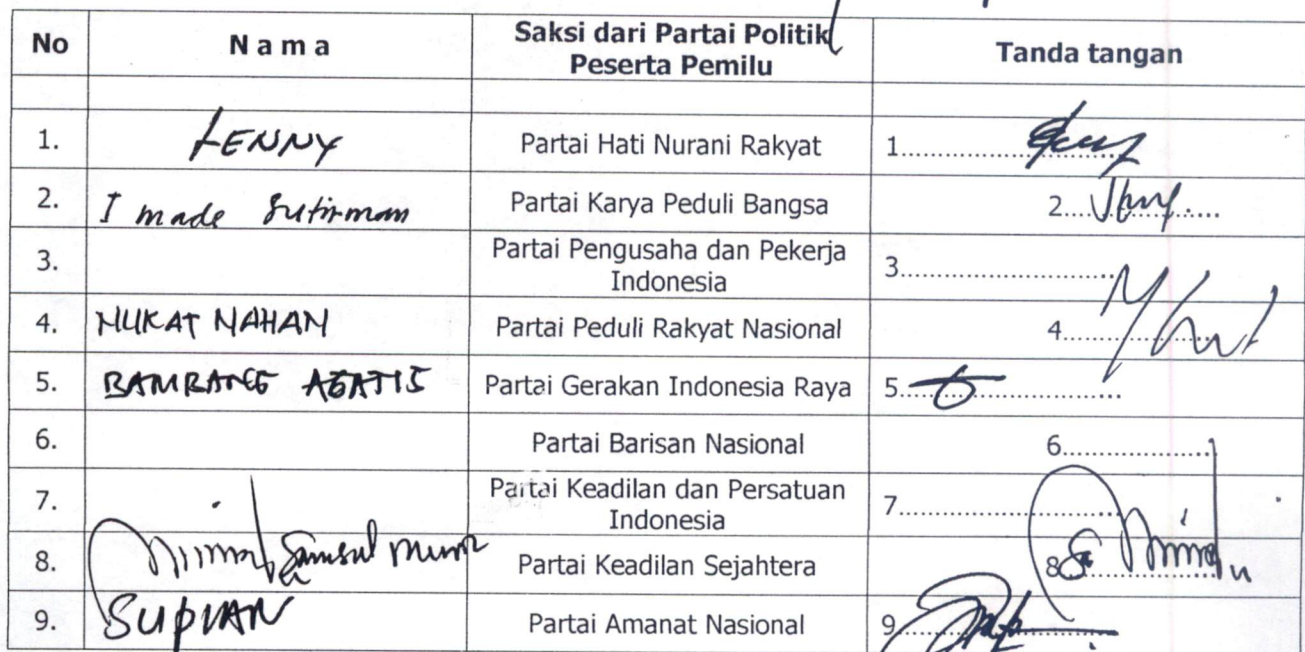 No N a m a Saksi dari Partai Politik Peserta Pemilu Tanda tangan
1. LENNY Partai Hati Nurani Rakyat 1..............................
2. I made Sutirman Partai Karya Peduli Bangsa 2......................
3. Partai Pengusaha dan Pekerja Indonesia 3..............................
4. NUKAT NAHAN Partai Peduli Rakyat Nasional 4......................
5. BAMBANG Partai Gerakan Indonesia Raya 5..............................
6. Partai Barisan Nasional 6......................
7. Partai Keadilan dan Persatuan Indonesia 7..............................
8. Samsul Partai Keadilan Sejahtera 8......................
9. SUPIAN Partai Amanat Nasional 9..............................